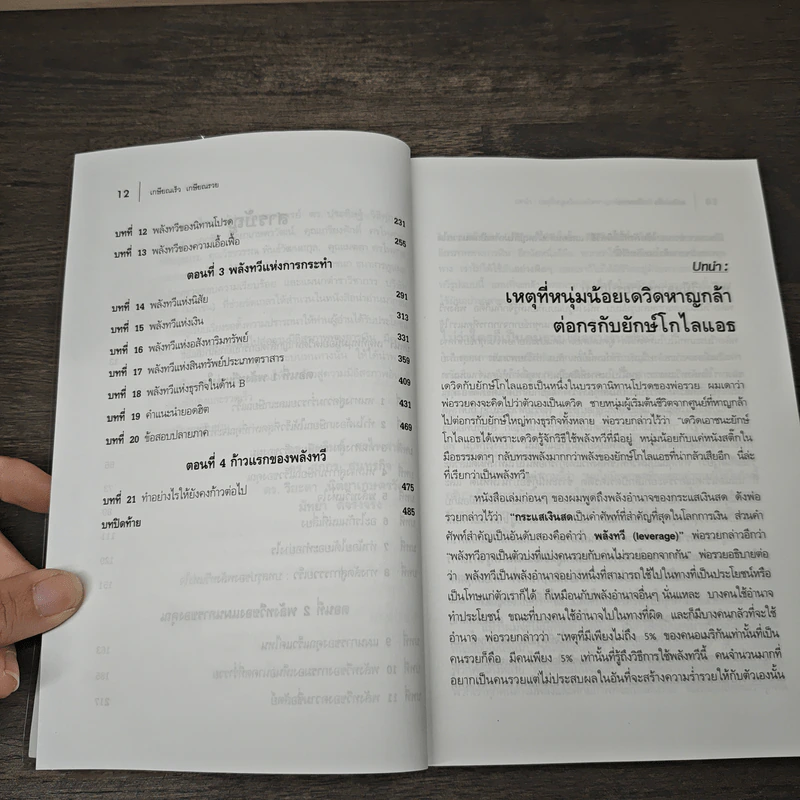 12 เกษียณเร็ว เกษียณรวย
บทที่ 12 พลังทวีของนิทานโปรด 231
บทที่ 13 พลังทวีของความเอื้อเฟื้อ 255
ตอนที่ 3 พลังทวีแห่งการกระทำ
บทที่ 14 พลังทวีแห่งนิสัย 291
บทที่ 15 พลังทวีแห่งเงิน 313
บทที่ 16 พลังทวีแห่งอสังหาริมทรัพย์ 331
บทที่ 17 พลังทวีแห่งสินทรัพย์ประเภทตราสาร 359
บทที่ 18 พลังทวีแห่งธุรกิจในด้าน B 409
บทที่ 19 คำแนะนำยอดฮิต 431
บทที่ 20 ข้อสอบปลายภาค 469
ตอนที่ 4 ก้าวแรกของพลังทวี
บทที่ 21 ทำอย่างไรให้ยังคงก้าวต่อไป 475
บทปิดท้าย 485
บทนำ :
เหตุที่หนุ่มน้อยเดวิดหาญกล้า
ต่อกรกับยักษ์โกไลแอธ
เดวิดกับยักษ์โกไลแอธเป็นหนึ่งในบรรดานิทานโปรดของพ่อรวย ผมเดาว่า
พ่อรวยคงจะคิดไปว่าตัวเองเป็นเดวิด ชายหนุ่มผู้เริ่มต้นชีวิตจากศูนย์ที่หาญกล้า
ไปต่อกรกับยักษ์ใหญ่ทางธุรกิจทั้งหลาย พ่อรวยกล่าวไว้ว่า "เดวิดเอาชนะยักษ์
โกไลแอธได้เพราะเดวิดรู้จักวิธีใช้พลังทวีที่มีอยู่ หนุ่มน้อยกับแค่หนังสติ๊กใน
มือธรรมดาๆ กลับทรงพลังมากกว่าพลังของยักษ์โกไลแอธที่น่ากลัวเสียอีก นี่ล่ะ
ที่เรียกว่าเป็นพลังทวี"
หนังสือเล่มก่อนๆ ของผมพูดถึงพลังอำนาจของกระแสเงินสด ดังพ่อ
รวยกล่าวไว้ว่า "กระแสเงินสดเป็นคำศัพท์ที่สำคัญที่สุดในโลกการเงิน ส่วนคำ
ศัพท์สำคัญเป็นอันดับสองคือคำว่า พลังทวี (leverage)" พ่อรวยกล่าวอีกว่า
"พลังทวีอาจเป็นตัวบ่งที่แบ่งคนรวยกับคนไม่รวยออกจากกัน" พ่อรวยอธิบายต่อ
ว่า พลังทวีเป็นพลังอำนาจอย่างหนึ่งที่สามารถใช้ไปในทางที่เป็นประโยชน์หรือ
เป็นโทษแก่ตัวเราก็ได้ ก็เหมือนกับพลังอำนาจอื่นๆ นั่นแหละ บางคนใช้อำนาจ
ทำประโยชน์ ขณะที่บางคนใช้อำนาจไปในทางที่ผิด และก็มีบางคนกลัวที่จะใช้
อำนาจ พ่อรวยกล่าวว่า "เหตุที่มีเพียงไม่ถึง 5% ของคนอเมริกันเท่านั้นที่เป็น
คนรวยก็คือ มีคนเพียง 5% เท่านั้นที่รู้ถึงวิธีการใช้พลังทวีนี้ คนจำนวนมากที่
อยากเป็นคนรวยแต่ไม่ประสบผลในอันที่จะสร้างความร่ำรวยให้กับตัวเองนั้น